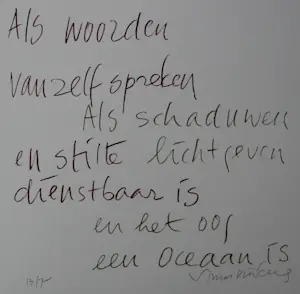 Als woorden
vanzelf spreken
Als schaduwen
en stilte lichtgeven
dienstbaar is
en het oog
een oceaan is